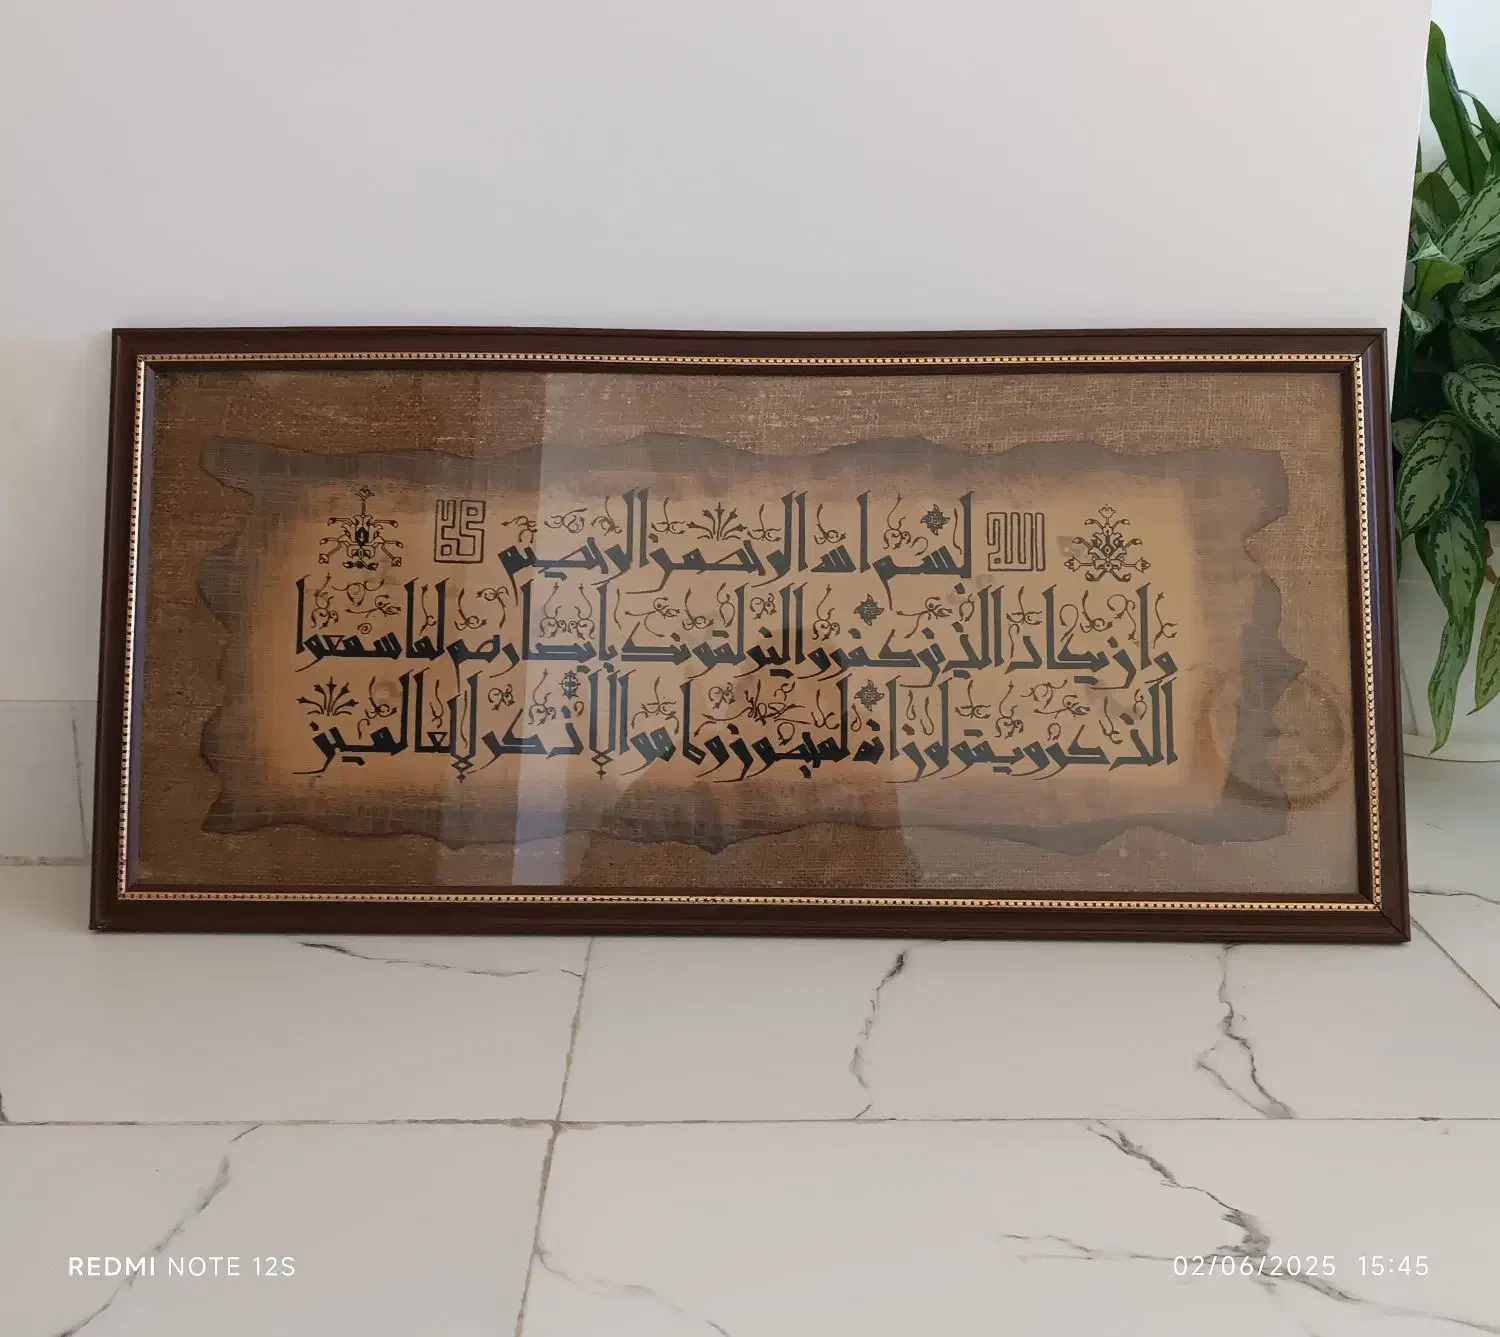 الله
محمد
بسم الله الرحمن الرحيم
وان يكاد الذين كفروا ليزلقونك بابصارهم لما سمعوا
الذكر ويقولون انه لمجنون وما هو الا ذكر للعالمين
REDMI NOTE 12S
02/06/2025 15:45